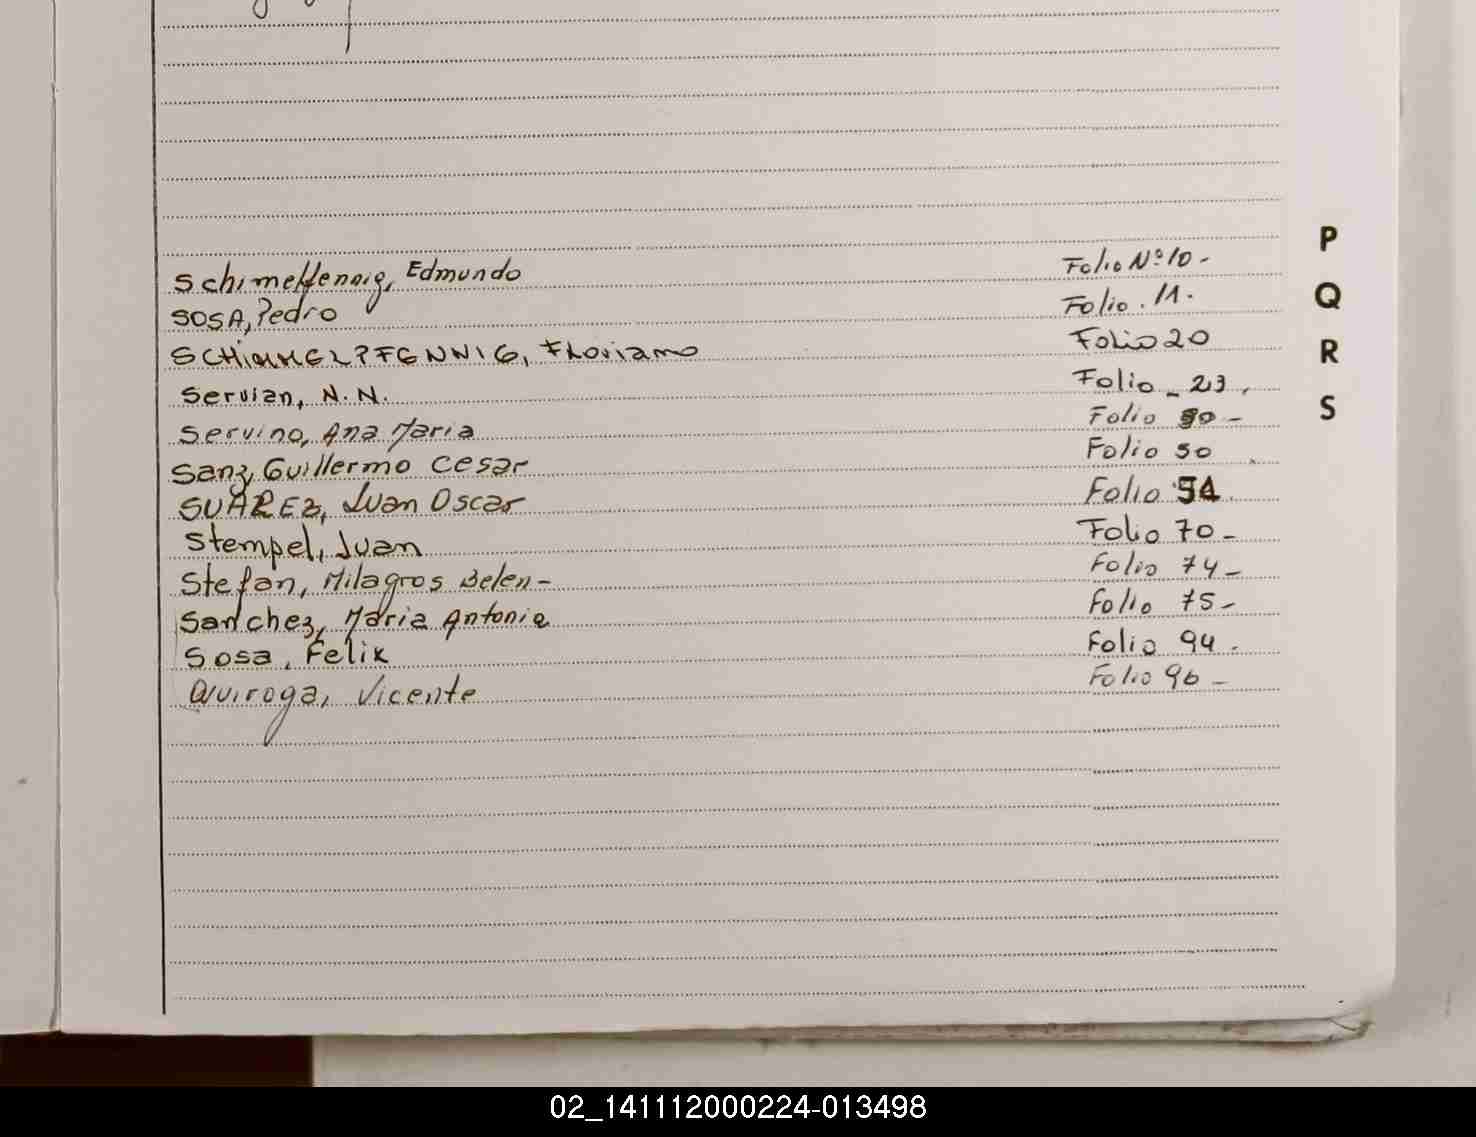 Schimelfennig, Edmundo Folio Nº 10 -
SOSA, Pedro Folio. 11.
SCHIMMELPFENNIG, Floriano Folio 20
Servian, N.N. Folio - 23.
Servino, Ana Maria Folio -
Sanz, Guillermo Cesar Folio 50
SUAREZ, Juan Oscar Folio 54
Stempel, Juan Folio 70 -
Stefan, Milagros Belen - Folio 74 -
Sanchez, Maria Antonia Folio 75 -
Sosa, Felix Folio 94.
Quiroga, Vicente Folio 96 -
P
Q
R
S
02_141112000224-013498